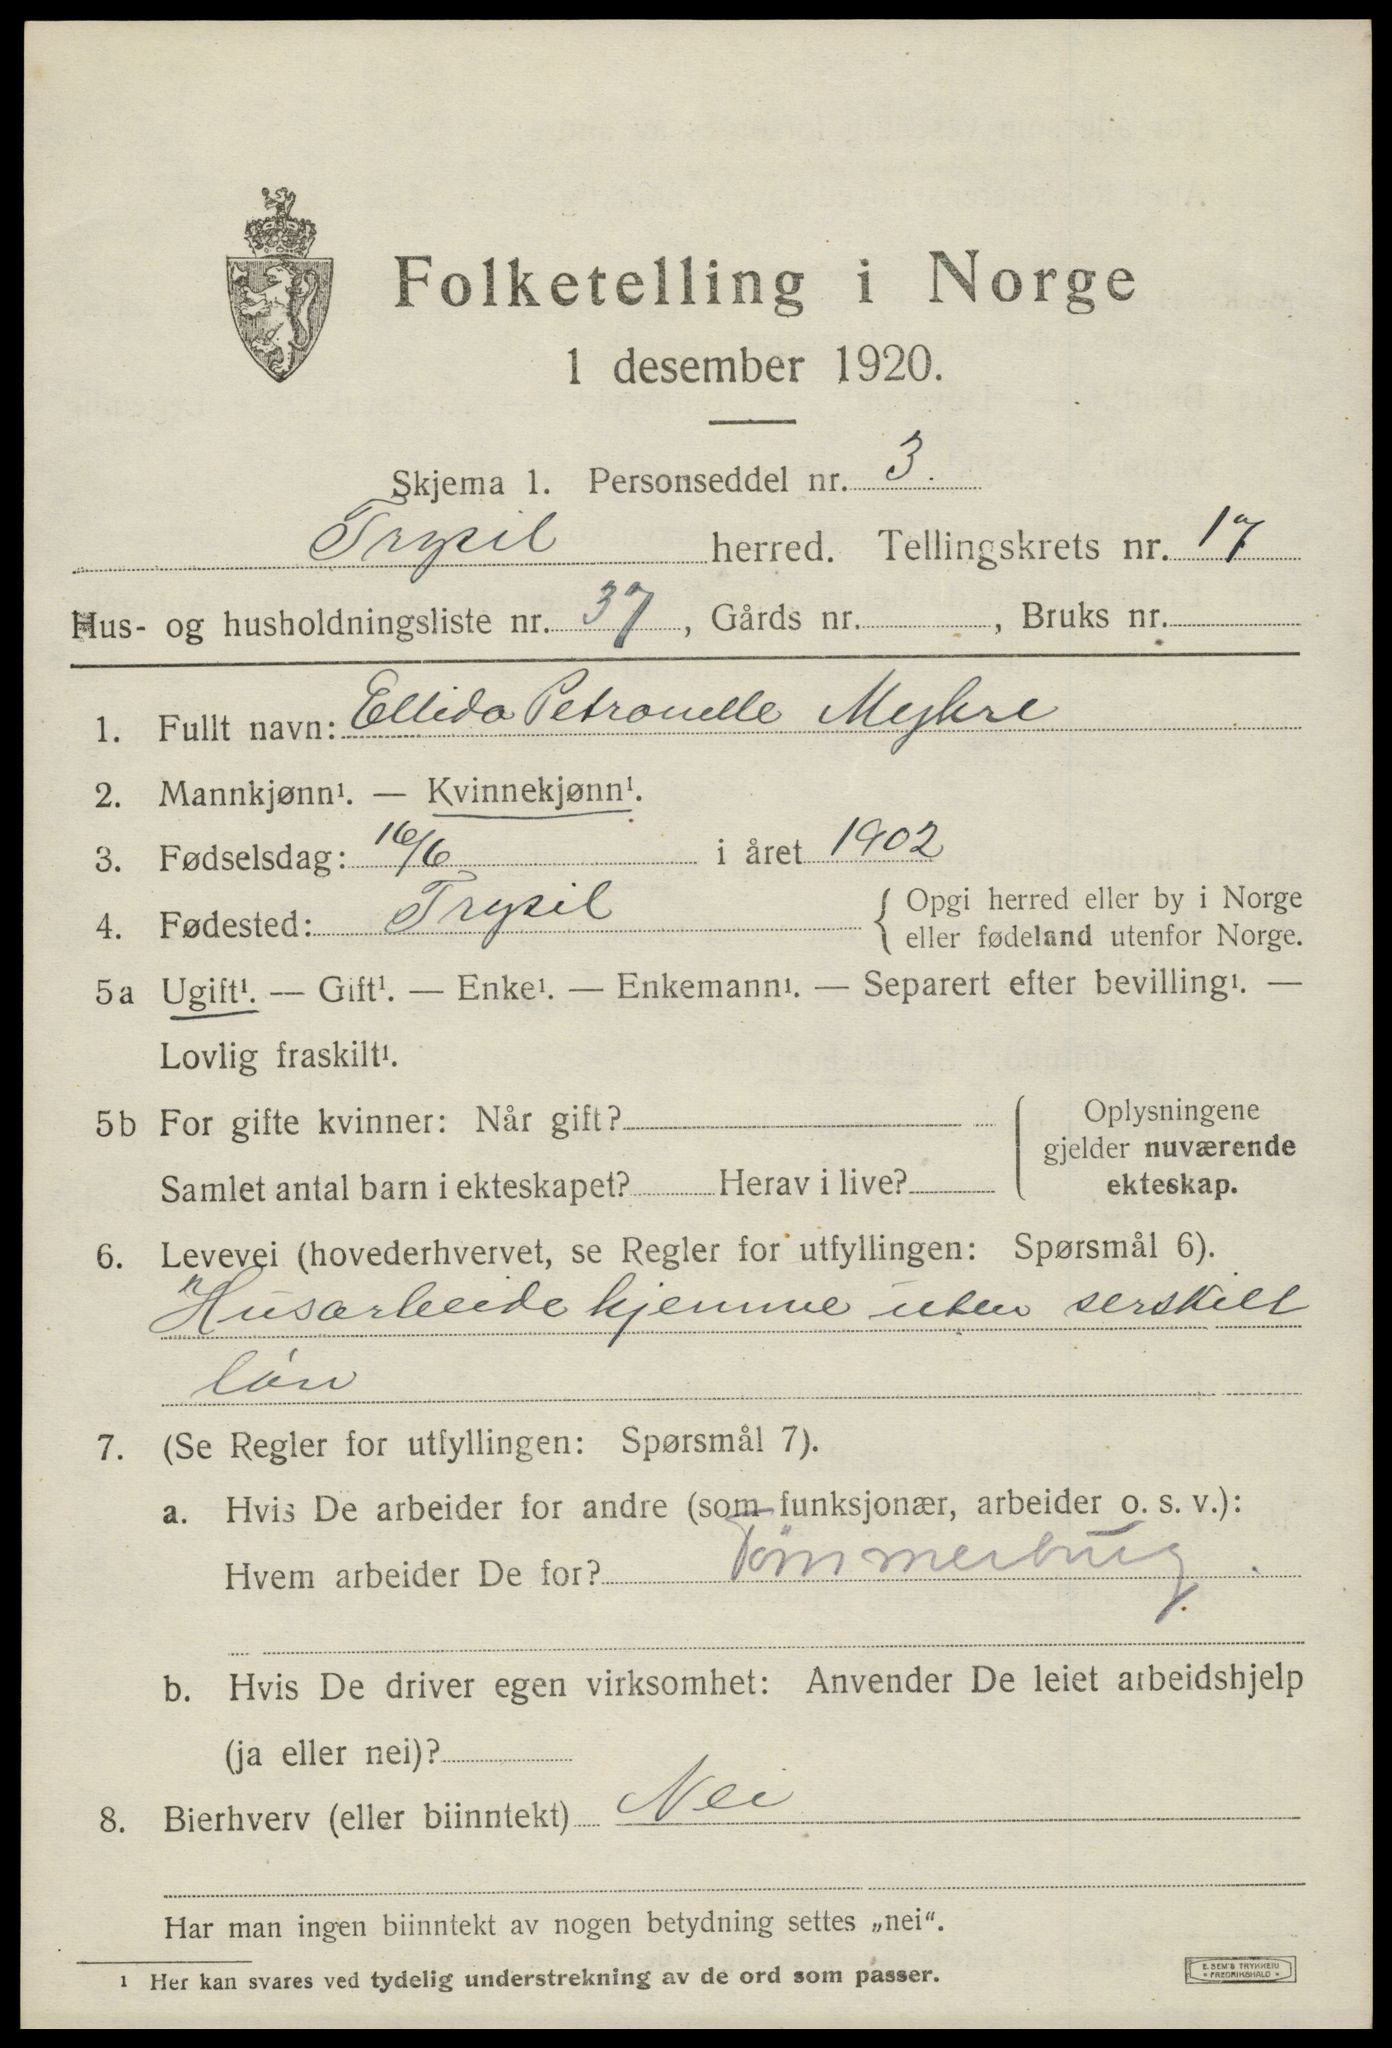 Folketelling i Norge
1 desember 1920.
Skjema 1. Personseddel nr. 3.
Trysil herred. Tellingskrets nr. 17
Hus- og husholdningsliste nr. 37, Gårds nr. , Bruks nr.
1. Fullt navn: Ellida Petronelle Myhre
2. Mannkjønn¹. — Kvinnekjønn¹.
3. Fødselsdag: 16/6 i året 1902
4. Fødested: Trysil { Opgi herred eller by i Norge
eller fødeland utenfor Norge.
5a Ugift¹. — Gift¹. — Enke¹. — Enkemann¹. — Separert efter bevilling¹. —
Lovlig fraskilt¹.
5b For gifte kvinner: Når gift?
Samlet antal barn i ekteskapet? Herav i live?
Oplysningene
gjelder nuværende
ekteskap.
6. Levevei (hovederhvervet, se Regler for utfyllingen: Spørsmål 6).
Husarbeide hjemme uten serskilt
løn
7. (Se Regler for utfyllingen: Spørsmål 7).
a. Hvis De arbeider for andre (som funksjonær, arbeider o. s. v.):
Hvem arbeider De for?
b. Hvis De driver egen virksomhet: Anvender De leiet arbeidshjelp
(ja eller nei)?
8. Bierhverv (eller biinntekt) Nei
Har man ingen biinntekt av nogen betydning settes „nei“.
¹ Her kan svares ved tydelig understrekning av de ord som passer.
E. SEM'S TRYKKERI
• FREDRIKSHALD •